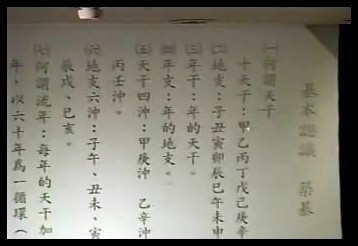 基本認識　築基
㈠何謂天干
十天干：甲乙丙丁戊己庚辛
㈡地支：子丑寅卯辰巳午未申
㈢年干：年的天干。
㈣年支：年的地支。
㈤天干四沖：甲庚沖　乙辛沖
丙壬沖。
㈥地支六沖：子午、丑未、寅
辰戌、巳亥。
㈦何謂流年：每年的天干加
年，以六十年為一循環（